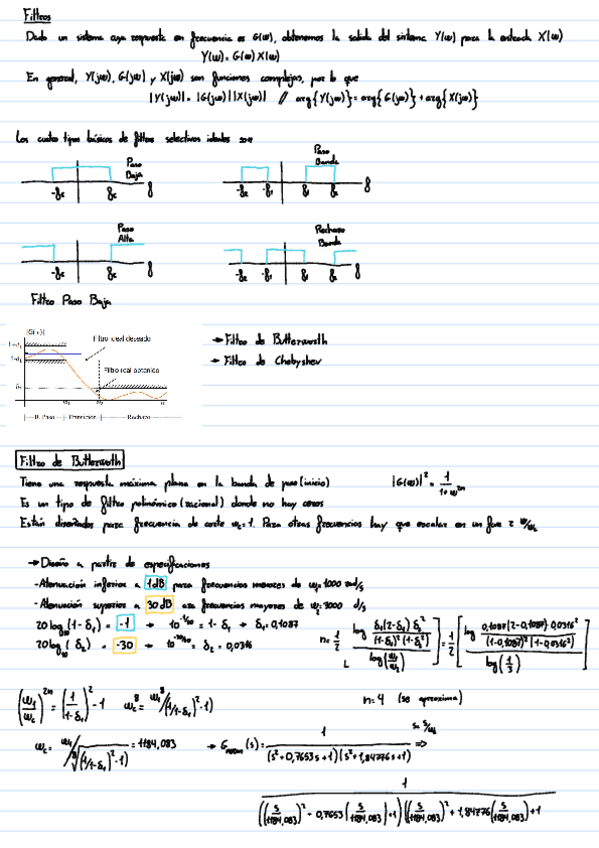 Filtros
Dado un sistema cuya respuesta en frecuencia es G(ω), obtenemos la salida del sistema Y(ω) para la entrada X(ω)
Y(ω) = G(ω) X(ω)
En general, Y(jω), G(jω) y X(jω) son funciones complejas, por lo que
|Y(jω)| = |G(jω)||X(jω)| // arg{Y(jω)} = arg{G(jω)} + arg{X(jω)}
Los cuatro tipos básicos de filtros selectivos ideales son
Paso Baja
-fc fc f
Paso Banda
-f2 -f1 f1 f2 f
Paso Alta
-fc fc f
Rechazo Banda
-f2 -f1 f1 f2 f
Filtro Paso Baja
|G(ω)|
Filtro ideal deseado
Filtro real obtenido
B. Paso Transición Rechazo
→ Filtro de Butterworth
→ Filtro de Chebyshev
Filtro de Butterworth
Tiene una respuesta máxima plana en la banda de paso (inicio) |G(ω)|² = 1/(1+ω²ⁿ)
Es un tipo de filtro polinómico (racional) donde no hay ceros
Están diseñados para frecuencia de corte ωc=1. Para otras frecuencias hay que escalar en un factor ω/ωc
→ Diseño a partir de especificaciones
- Atenuación inferior a 1dB para frecuencias menores de ω1=1000 rad/s
- Atenuación superior a 30dB frecuencias mayores de ω2=3000 d/s
20log₁₀(1-δ₁) = -1 → 10^(-1/20) = 1-δ₁ → δ₁=0,1087
20log₁₀(δ₂) = -30 → = δ₂ = 0,0316
n = 1/2 [log (δ₁(2-δ₁)δ₂²/((1-δ₁)²(1-δ₂²))) / log(ω1/ω2)] = 1/2 [log (0,1087(2-0,1087)0,0316²/((1-0,1087)²(1-0,0316²))) / log(1/3)]
(ω1/ωc)²ⁿ = (1/(1-δ₁))² - 1 ωc⁸ = ω1⁸/((1/1-δ₁)²-1) n=4 (se aproxima)
ωc = ω1/⁸√((1/1-δ₁)²-1) = 1184,083 → Gnorm(s) = 1/((s²+0,7653s+1)(s²+1,84776s+1)) s=s/ωc ⇒
1/(((s/1184,083)² + 0,7653(s/1184,083)+1)((s/1184,083)² + 1,84776(s/1184,083)+1))